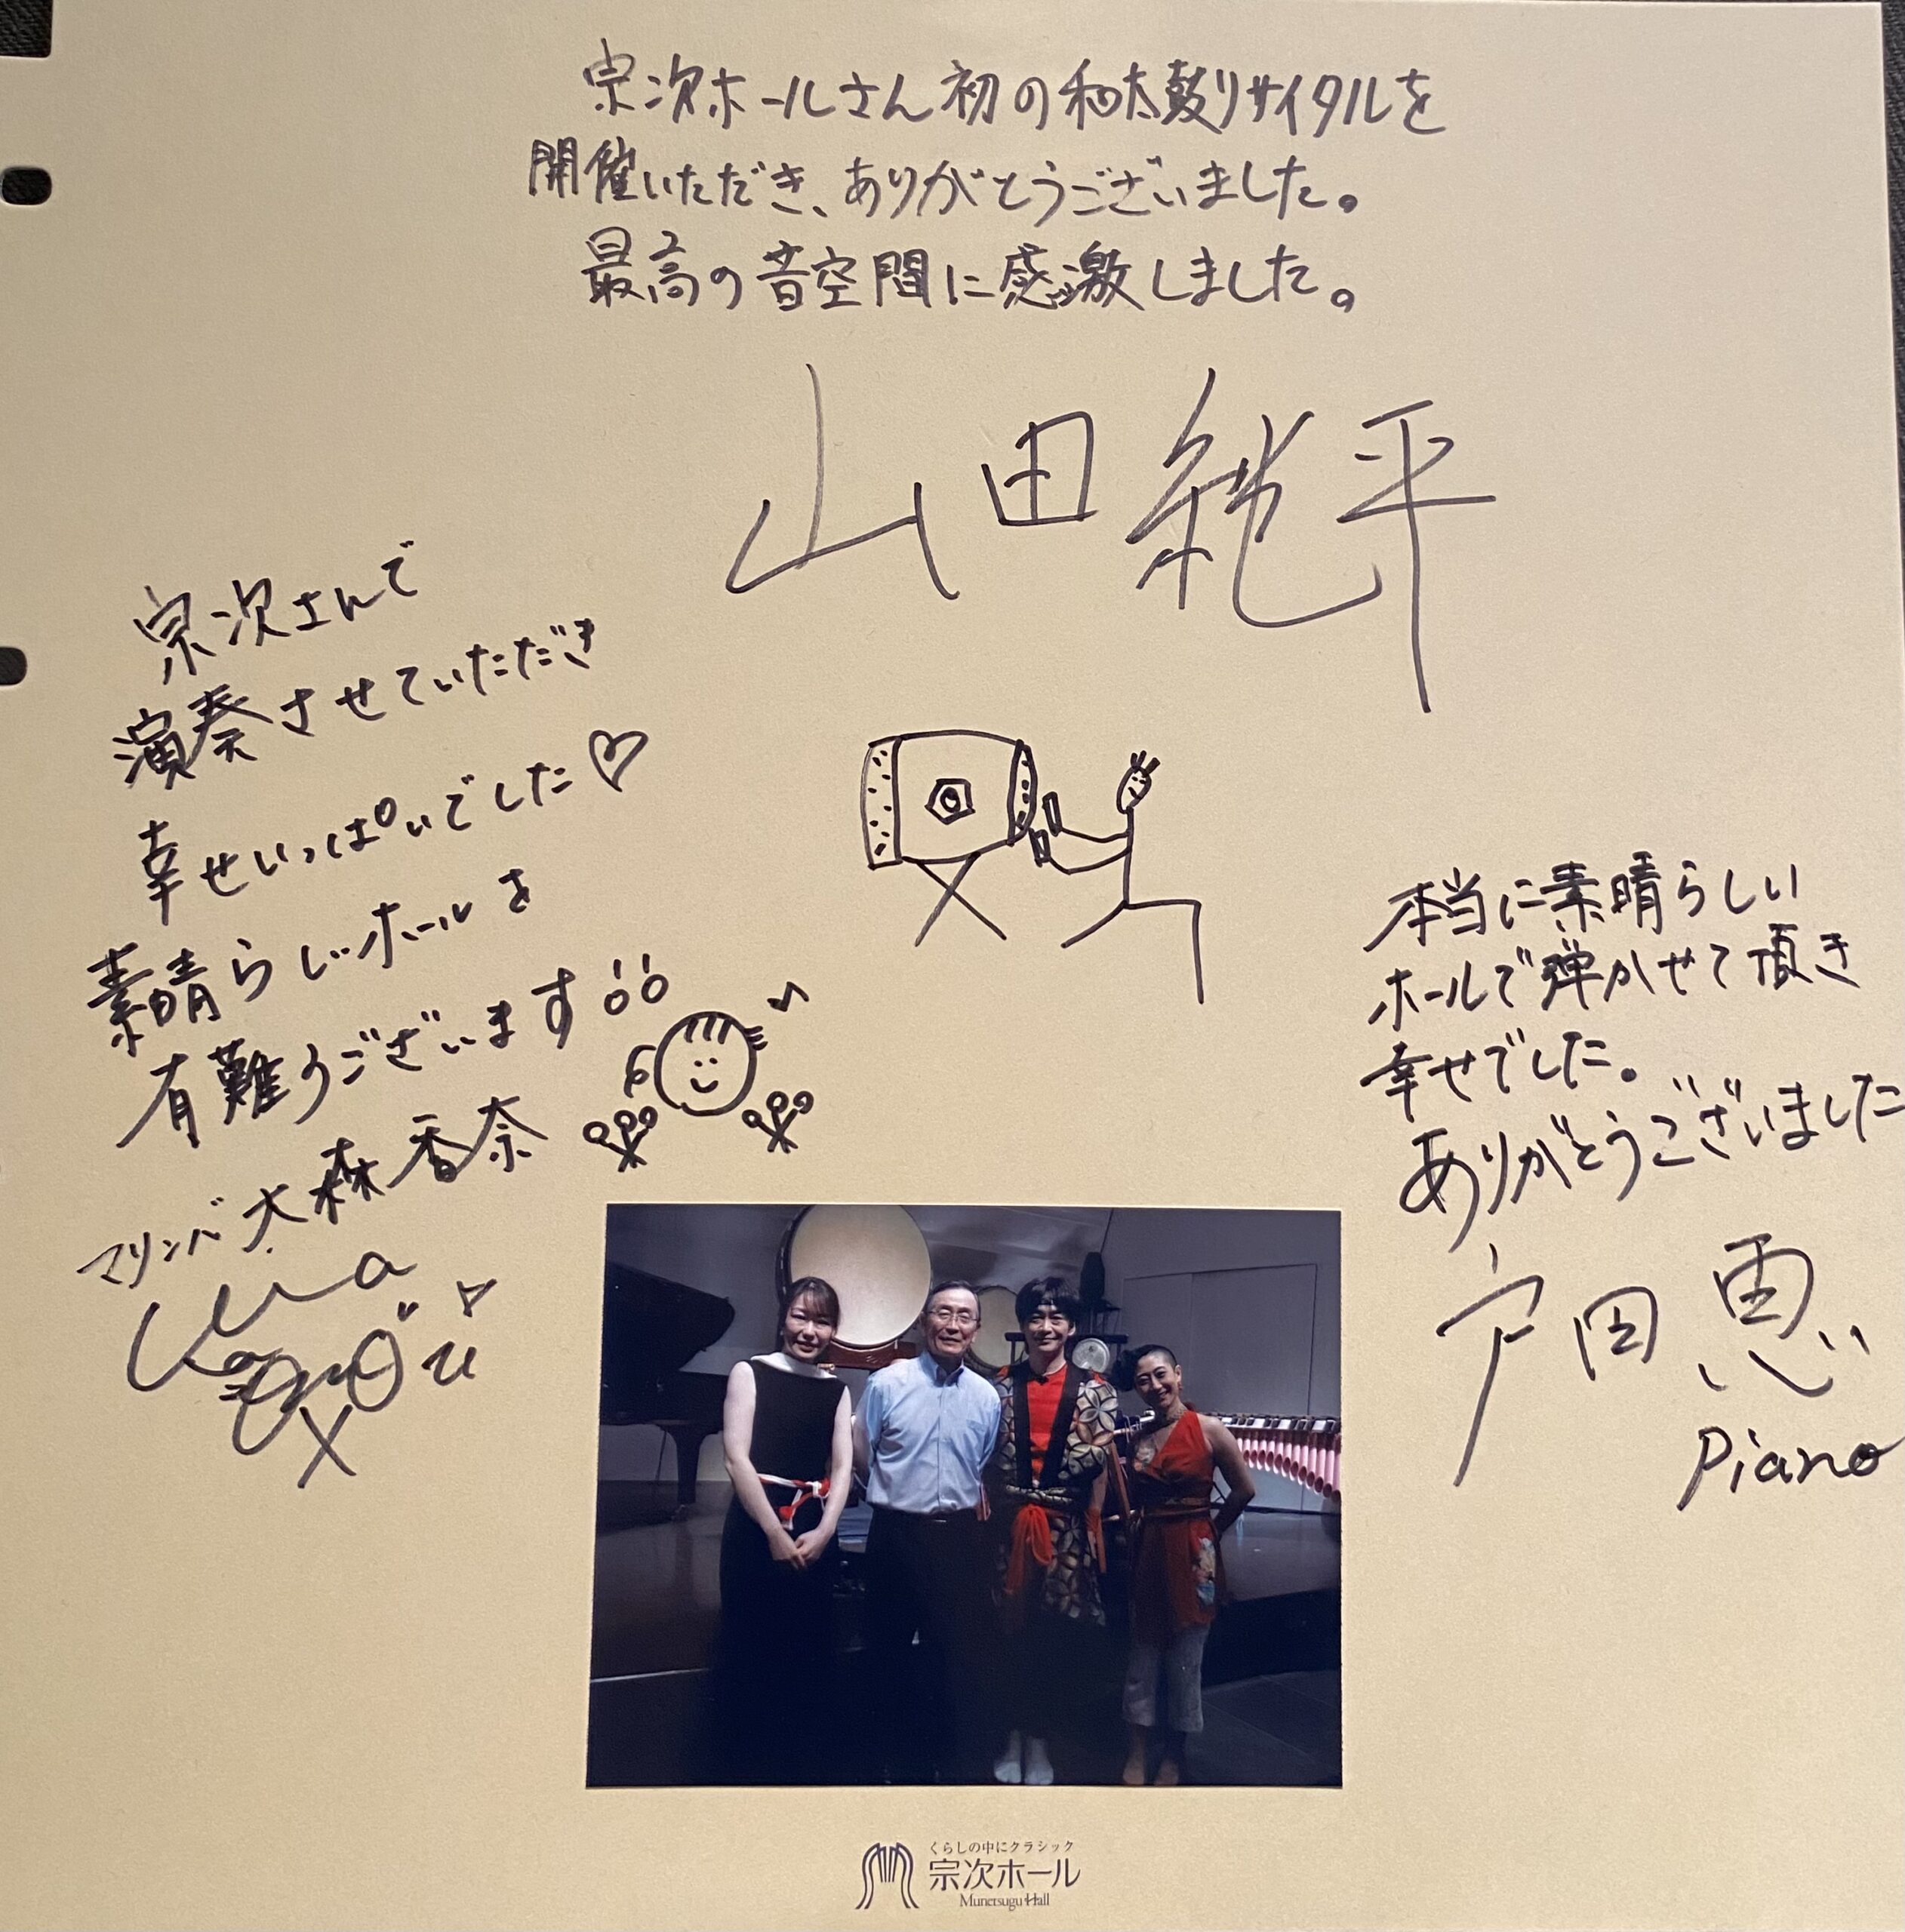 宗次ホールさん初の和太鼓リサイタルを
開催いただき、ありがとうございました。
最高の音空間に感激しました。
山田純平
宗次さんで
演奏させていただき
幸せいっぱいでした♡
素晴らしいホールを
有難うございます
マリンバ 大森香奈
本当に素晴らしい
ホールで弾かせて頂き
幸せでした。
ありがとうございました
戸田恵
Piano
くらしの中にクラシック
宗次ホール
Munetsugu Hall